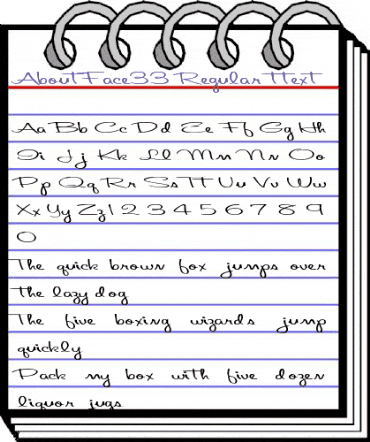 AboutFace33 Regular ttext
Aa Bb Cc Dd Ee Ff Gg Hh
Ii Jj Kk Ll Mm Nn Oo
Pp Qq Rr Ss Tt Uu Vv Ww
Xx Yy Zz 1 2 3 4 5 6 7 8 9
0
The quick brown fox jumps over
the lazy dog
The five boxing wizards jump
quickly
Pack my box with five dozen
liquor jugs